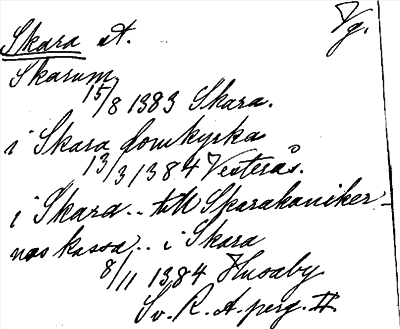 Skara st. Vg.
Skarum
15/8 1383 Skara.
i Skara domkyrka
13/3 1384 Vesterås.
i Skara .. till Skarakaniker-
nas kassa .. i Skara
8/11 1384 Husaby
Sv. R. A. perg. II.